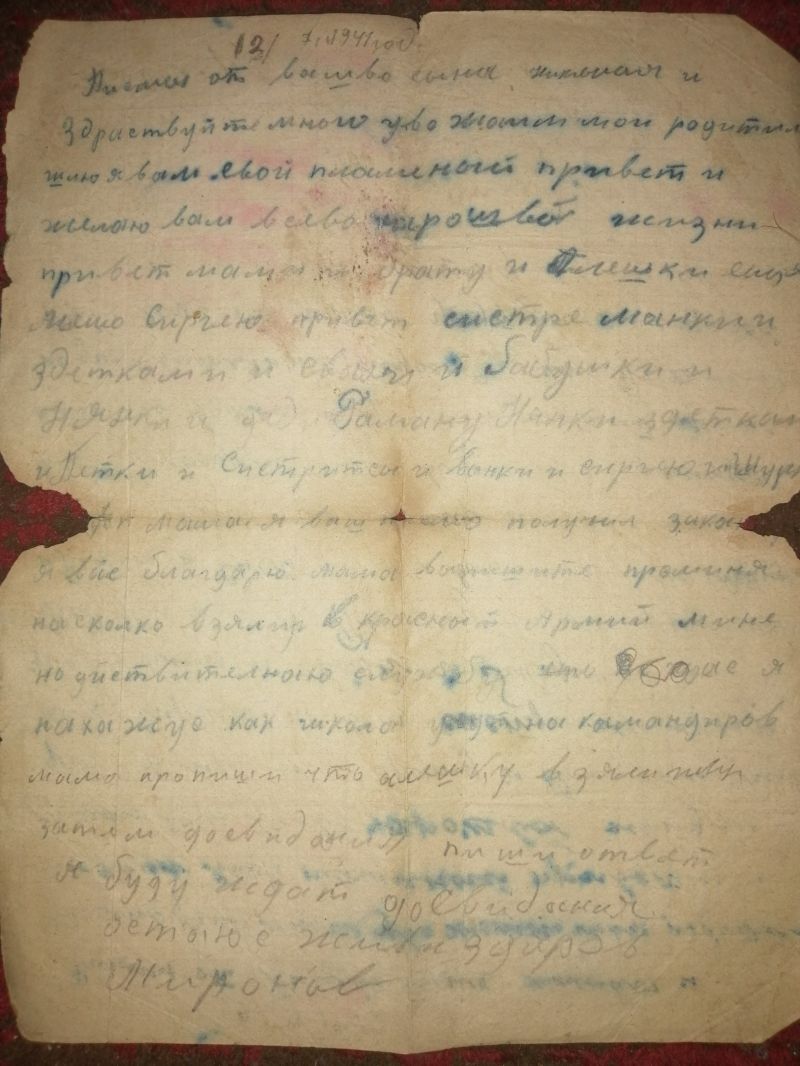 12/ 7, 1941 год.
Писмо от вашво сына Николая и
Здраствуйте многоуважаими мои родители
шлю я вам свой пламеный привет и
желаю вам всево харошво жизни
привет мама и брату и Алешки
Сиргею привет систре Манки и
здетками и и бабушки и
Нянки и Раману Нянки здетками
и Петки и Систритсы и Ванки и сиргею и Шурки
мама я ваш получил
я вас благадарю мама
насколко взяли в красный Армий мине
но уйствителнаю службу что я
нахажус как школа камандиров
мама пропиши что алешку взяли
затем досвидания пиши отвят
я буду ждат досвидания
остаюс жив и здаров
Миронов